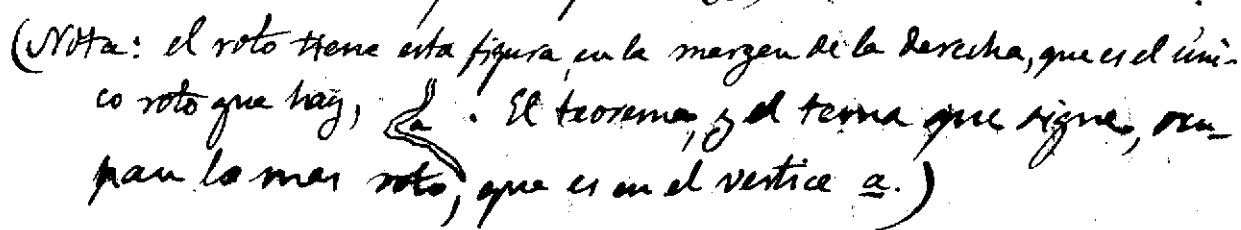 (Nota: el roto tiene esta figura en la margen de la derecha, que es el úni-
co roto que hay, a. El teorema, y el tema que sigue, ocu-
pan lo mas roto, que es en el vertice a.)